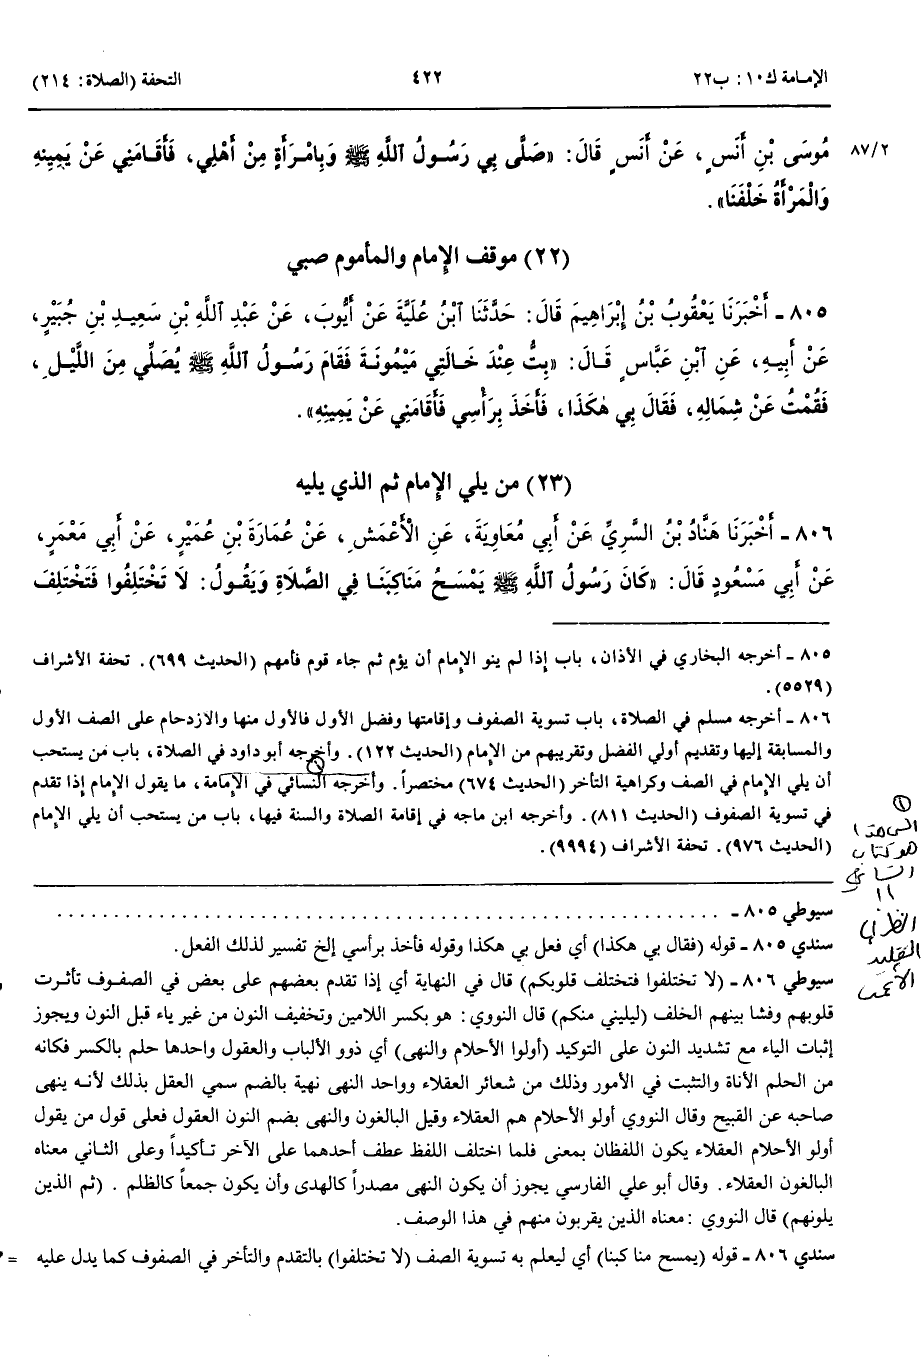 الإمامة ك١٠: ب٢٢
٤٢٢
التحفة (الصلاة: ٢١٤)
٨٧/٢
مُوسَى بْنِ أَنَسٍ، عَنْ أَنَسٍ قَالَ: «صَلَّى بِي رَسُولُ ٱللَّهِ ﷺ وَبِامْرَأَةٍ مِنْ أَهْلِي، فَأَقَامَنِي عَنْ يَمِينِهِ
وَالْمَرْأَةُ خَلْفَنَا».
(٢٢) موقف الإمام والمأموم صبي
٨٠٥ - أَخْبَرَنَا يَعْقُوبُ بْنُ إِبْرَاهِيمَ قَالَ: حَدَّثَنَا ٱبْنُ عُلَيَّةَ عَنْ أَيُّوبَ، عَنْ عَبْدِ ٱللَّهِ بْنِ سَعِيدِ بْنِ جُبَيْرٍ،
عَنْ أَبِيهِ، عَنِ ٱبْنِ عَبَّاسٍ قَالَ: «بِتُّ عِنْدَ خَالَتِي مَيْمُونَةَ فَقَامَ رَسُولُ ٱللَّهِ ﷺ يُصَلِّي مِنَ اللَّيْلِ،
فَقُمْتُ عَنْ شِمَالِهِ، فَقَالَ بِي هٰكَذَا، فَأَخَذَ بِرَأْسِي فَأَقَامَنِي عَنْ يَمِينِهِ».
(٢٣) من يلي الإمام ثم الذي يليه
٨٠٦ - أَخْبَرَنَا هَنَّادُ بْنُ السَّرِيِّ عَنْ أَبِي مُعَاوِيَةَ، عَنِ الْأَعْمَشِ، عَنْ عُمَارَةَ بْنِ عُمَيْرٍ، عَنْ أَبِي مَعْمَرٍ،
عَنْ أَبِي مَسْعُودٍ قَالَ: «كَانَ رَسُولُ ٱللَّهِ ﷺ يَمْسَحُ مَنَاكِبَنَا فِي الصَّلَاةِ وَيَقُولُ: لَا تَخْتَلِفُوا فَتَخْتَلِفَ
٨٠٥ - أخرجه البخاري في الأذان، باب إذا لم ينو الإمام أن يؤم ثم جاء قوم فأمهم (الحديث ٦٩٩). تحفة الأشراف
(٥٥٢٩).
٨٠٦ - أخرجه مسلم في الصلاة، باب تسوية الصفوف وإقامتها وفضل الأول فالأول منها والازدحام على الصف الأول
والمسابقة إليها وتقديم أولي الفضل وتقريبهم من الإمام (الحديث ١٢٢). وأخرجه أبو داود في الصلاة، باب من يستحب
أن يلي الإمام في الصف وكراهية التأخر (الحديث ٦٧٤) مختصراً. وأخرجه النسائي في الإمامة، ما يقول الإمام إذا تقدم
في تسوية الصفوف (الحديث ٨١١). وأخرجه ابن ماجه في إقامة الصلاة والسنة فيها، باب من يستحب أن يلي الإمام
(الحديث ٩٧٦). تحفة الأشراف (٩٩٩٤).
هو كتاب
سيوطي ٨٠٥ - . . . . . . . . . . . . . . . . . . . . . . . . . . . . . .
سندي ٨٠٥ - قوله (فقال بي هكذا) أي فعل بي هكذا وقوله فأخذ برأسي إلخ تفسير لذلك الفعل.
سيوطي ٨٠٦ - (لا تختلفوا فتختلف قلوبكم) قال في النهاية أي إذا تقدم بعضهم على بعض في الصفوف تأثرت
قلوبهم وفشا بينهم الخلف (ليليني منكم) قال النووي: هو بكسر اللامين وتخفيف النون من غير ياء قبل النون ويجوز
إثبات الياء مع تشديد النون على التوكيد (أولوا الأحلام والنهى) أي ذوو الألباب والعقول واحدها حلم بالكسر فكانه
من الحلم الأناة والتثبت في الأمور وذلك من شعائر العقلاء وواحد النهى نهية بالضم سمي العقل بذلك لأنه ينهى
صاحبه عن القبيح وقال النووي أولو الأحلام هم العقلاء وقيل البالغون والنهى بضم النون العقول فعلى قول من يقول
أولو الأحلام العقلاء يكون اللفظان بمعنى فلما اختلف اللفظ عطف أحدهما على الآخر تأكيداً وعلى الثاني معناه
البالغون العقلاء. وقال أبو علي الفارسي يجوز أن يكون النهى مصدراً كالهدى وأن يكون جمعاً كالظلم . (ثم الذين
يلونهم) قال النووي :معناه الذين يقربون منهم في هذا الوصف.
سندي ٨٠٦ - قوله (يمسح مناكبنا) أي ليعلم به تسوية الصف (لا تختلفوا) بالتقدم والتأخر في الصفوف كما يدل عليه =